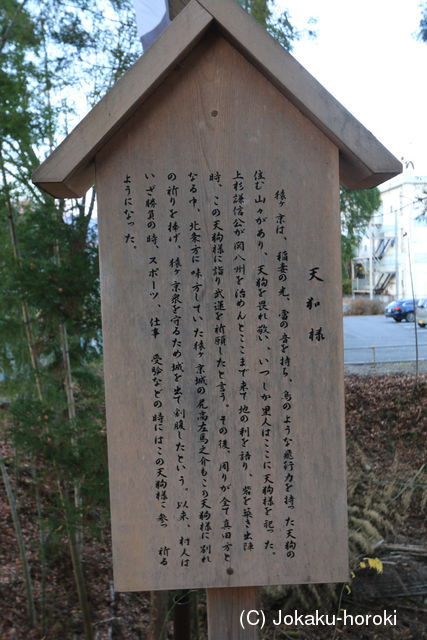 天狗様
猿ヶ京は、稲妻の光、雷の音を持ち、鳥のような飛行力を持った天狗の
住む山々があり、天狗を畏れ敬い、いつしか里人はここに天狗様を祀った。
上杉謙信公が関八州を治めんとここまで来て地の利を語り、砦を築き出陣
時、この天狗様に詣り武運を祈願したと言う。その後、周りが全て真田方と
なる中、北条方に味方していた猿ヶ京城の尻高左馬之介もこの天狗様に別れ
の祈りを捧げ、猿ヶ京衆を守るため城を出て割腹したという。以来、村人は
いざ勝負の時、スポーツ、仕事 受験などの時にはこの天狗様に参っ 祈る
ようになった。
(C) Jokaku-horoki